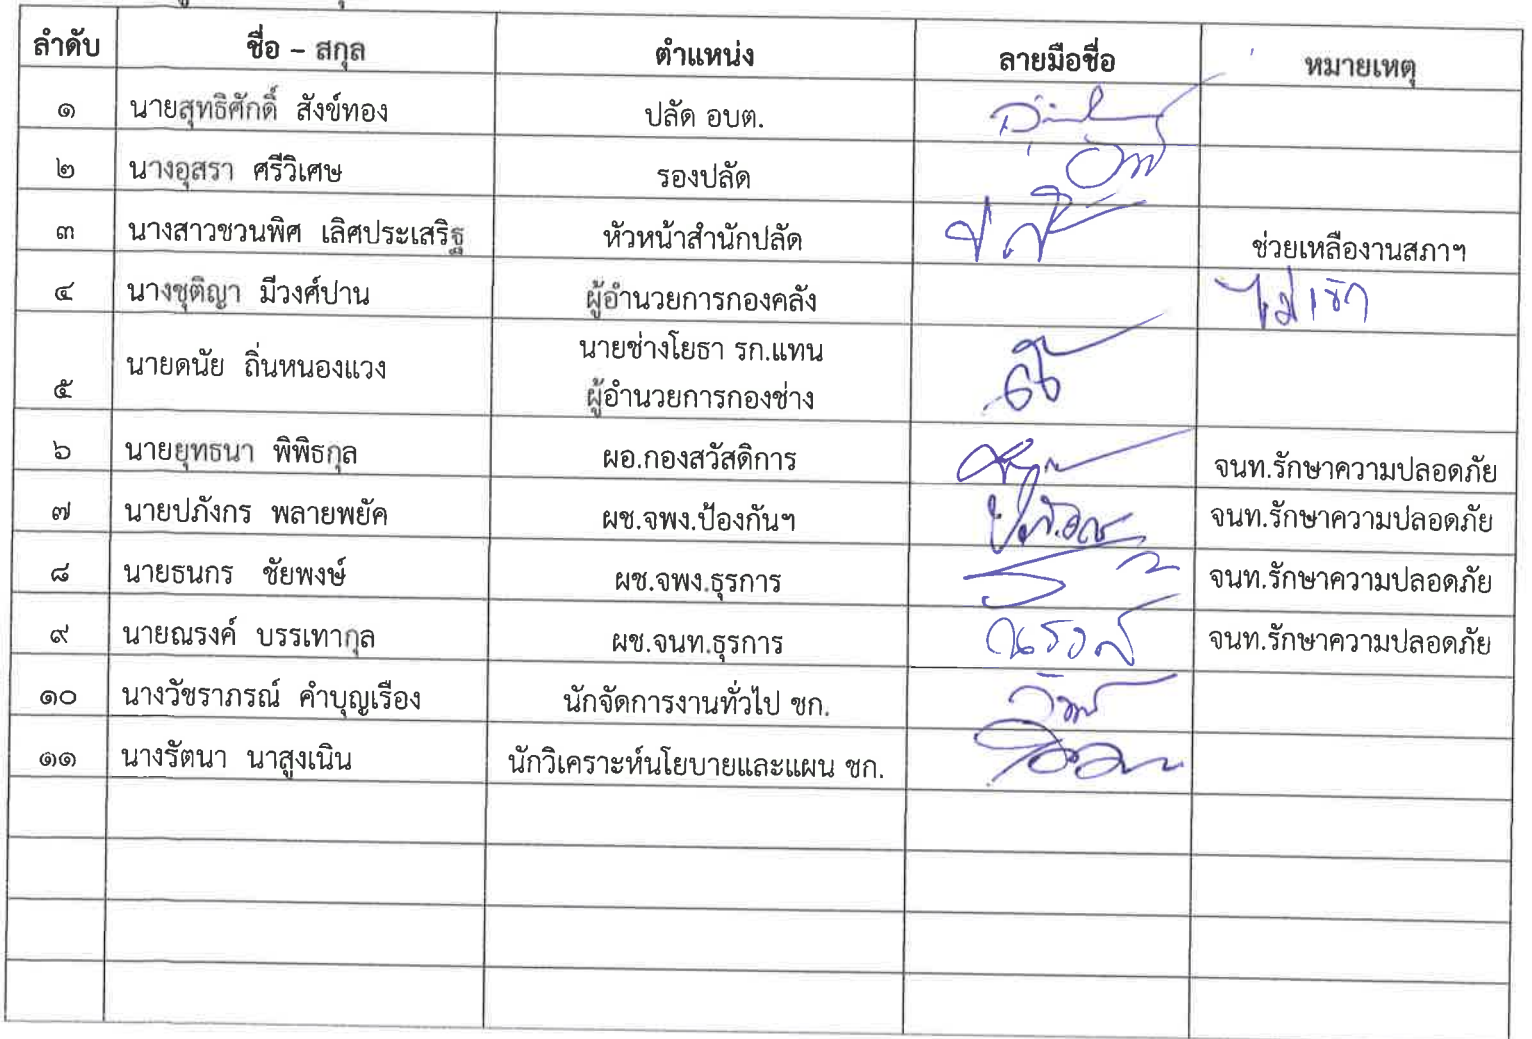 ลำดับ ชื่อ – สกุล ตำแหน่ง ลายมือชื่อ หมายเหตุ
๑ นายสุทธิศักดิ์ สังข์ทอง ปลัด อบต.
๒ นางอุสรา ศรีวิเศษ รองปลัด
๓ นางสาวชวนพิศ เลิศประเสริฐ หัวหน้าสำนักปลัด ช่วยเหลืองานสภาฯ
๔ นางชุติญา มีวงศ์ปาน ผู้อำนวยการกองคลัง ไม่เข้า
๕ นายดนัย ถิ่นหนองแวง นายช่างโยธา รก.แทน
ผู้อำนวยการกองช่าง
๖ นายยุทธนา พิพิธกุล ผอ.กองสวัสดิการ จนท.รักษาความปลอดภัย
๗ นายปภังกร พลายพยัค ผช.จพง.ป้องกันฯ จนท.รักษาความปลอดภัย
๘ นายธนกร ชัยพงษ์ ผช.จพง.ธุรการ จนท.รักษาความปลอดภัย
๙ นายณรงค์ บรรเทากุล ผช.จนท.ธุรการ ณรงค์ จนท.รักษาความปลอดภัย
๑๐ นางวัชราภรณ์ คำบุญเรือง นักจัดการงานทั่วไป ชก.
๑๑ นางรัตนา นาสูงเนิน นักวิเคราะห์นโยบายและแผน ชก.